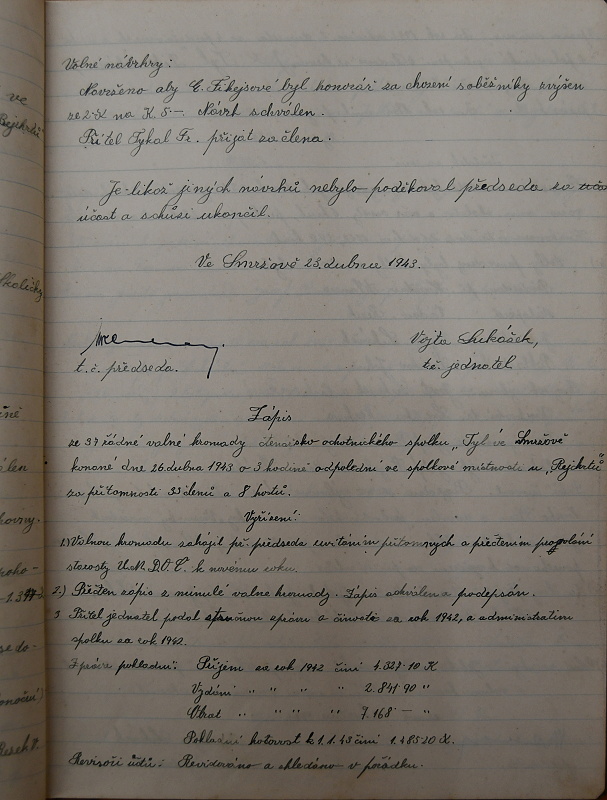 Volné návrhy:
Navrženo aby E. Fikejsové byl honorář za chození s oběžníky zvýšen
ze 2·K na K. 5·–. Návrh schválen.
Přítel Tykal Fr. přijat za člena.
Je-likož jiných návrhů nebylo poděkoval předseda za
účast a schůzi ukončil.
Ve Smržově 23. dubna 1943.
t. č. předseda.
Vojta Lukášek,
t.č. jednatel
Zápis
ze 37 řádné valné hromady čtenářsko ochotnického spolku „Tyl" ve Smržově
konané dne 26. dubna 1943 o 3 hodině odpolední ve spolkové místnosti u „Rejchrtů"
za přítomnosti 33 členů a 8 hostů.
Vyřízení:
1.) Valnou hromadu zahájil př. předseda uvítáním přítomných a přečtením provolání
starosty Ú.M.D.O.Č. k novému roku.
2.) Přečten zápis z minulé valné hromady. Zápis schválen a podepsán.
3. Přítel jednatel podal stručnou zprávu o činosti za rok 1942, a administrativu
spolku za rok 1942.
Zpráva pokladní: Příjem za rok 1942 činí 4.327·10 K
Vydání " " " " 2.841·90 "
Obrat " " " " 7.168·– "
Pokladní hotovost k 1.1.43 činí 1.485·20 K.
Revisoři účtů: Revidováno a shledáno v pořádku.